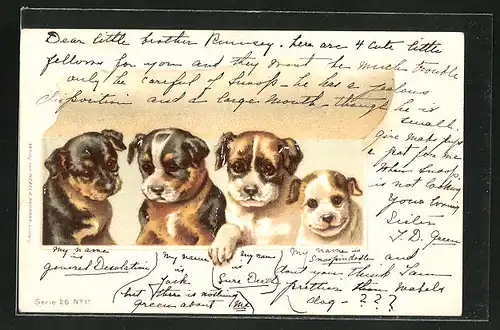 Dear little brother Rumsey. here are 4 cute little
fellows for you and they wont be much trouble
only be careful of Snoop - he has a jealous
disposition and a large mouth - though he is
small.
Give
a pat for me
When Snoop
is not looking
Your loving
Sister
T. D. Green
My name
is
General Desolation
My name
is
Jack
but there is nothing
green about Me
My name
is
Sure Death
My name
is
Snoopindodle and
dont you think I am
prettier than Mabels
dog - ? ? ?
Serie 26 No 11